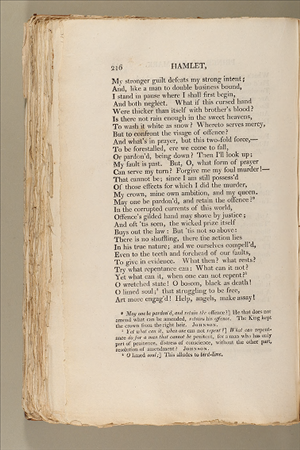 216 HAMLET,
My stronger guilt defeats my strong intent;
And, like a man to double business bound,
I stand in pause where I shall first begin,
And both neglect. What if this cursed hand
Were thicker than itself with brother's blood?
Is there not rain enough in the sweet heavens,
To wash it white as snow? Whereto serves mercy,
But to confront the visage of offence?
And what's in prayer, but this two-fold force,—
To be forestalled, ere we come to fall,
Or pardon'd, being down? Then I'll look up;
My fault is past. But, O, what form of prayer
Can serve my turn? Forgive me my foul murder!—
That cannot be; since I am still possess'd
Of those effects for which I did the murder,
My crown, mine own ambition, and my queen.
May one be pardon'd, and retain the offence?⁸
In the corrupted currents of this world,
Offence's gilded hand may shove by justice;
And oft 'tis seen, the wicked prize itself
Buys out the law: But 'tis not so above:
There is no shuffling, there the action lies
In his true nature; and we ourselves compell'd,
Even to the teeth and forehead of our faults,
To give in evidence. What then? what rests?
Try what repentance can: What can it not?
Yet what can it, when one can not repent?⁹
O wretched state! O bosom, black as death!
O limed soul;¹ that struggling to be free,
Art more engag'd! Help, angels, make assay!
⁸ May one be pardon'd, and retain the offence?] He that does not
amend what can be amended, retains his offence. The King kept
the crown from the right heir. JOHNSON.
⁹ Yet what can it, when one can not repent?] What can repent-
ance do for a man that cannot be penitent, for a man who has only
part of penitence, distress of conscience, without the other part,
resolution of amendment? JOHNSON.
¹ O limed soul;] This alludes to bird-lime.